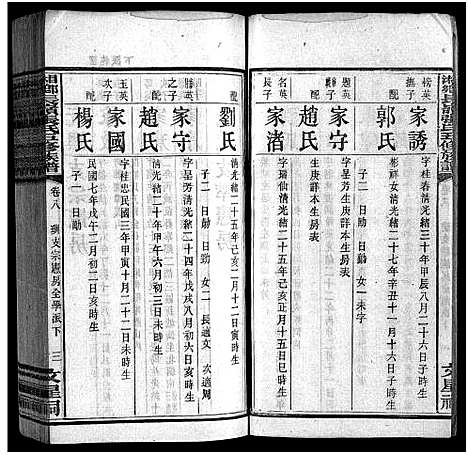 榜英撫子
家誘
字桂春清光緒三十年甲辰八月二十六日子時生
配
郭氏
彬祥女清光緒二十七年辛丑十一月十六日子時生
子一 日 女一未字
趙英之子
家守
字呈芳生庚詳本生房表
配
趙氏
生庚詳本生房表
名英長子
家渚
字瑞仙清光緒二十五年己亥正月十五日亥時生
配
劉氏
清光緒二十五年己亥二月十二日寅時生
子二 日勛 日勁 女二 長適文 次適周
勝英之子
家守
字呈芳清光緒二十四年戊戌八月初六日亥時生
配
趙氏
清光緒二十年甲午六月初三日未時生
玉英次子
家國
字桂忠民國三年甲寅十月二十二日未時生
配
楊氏
民國七年戊午二月初二日亥時生
子一 日勛
卷八
宗憲房全學派下
三
文星祠